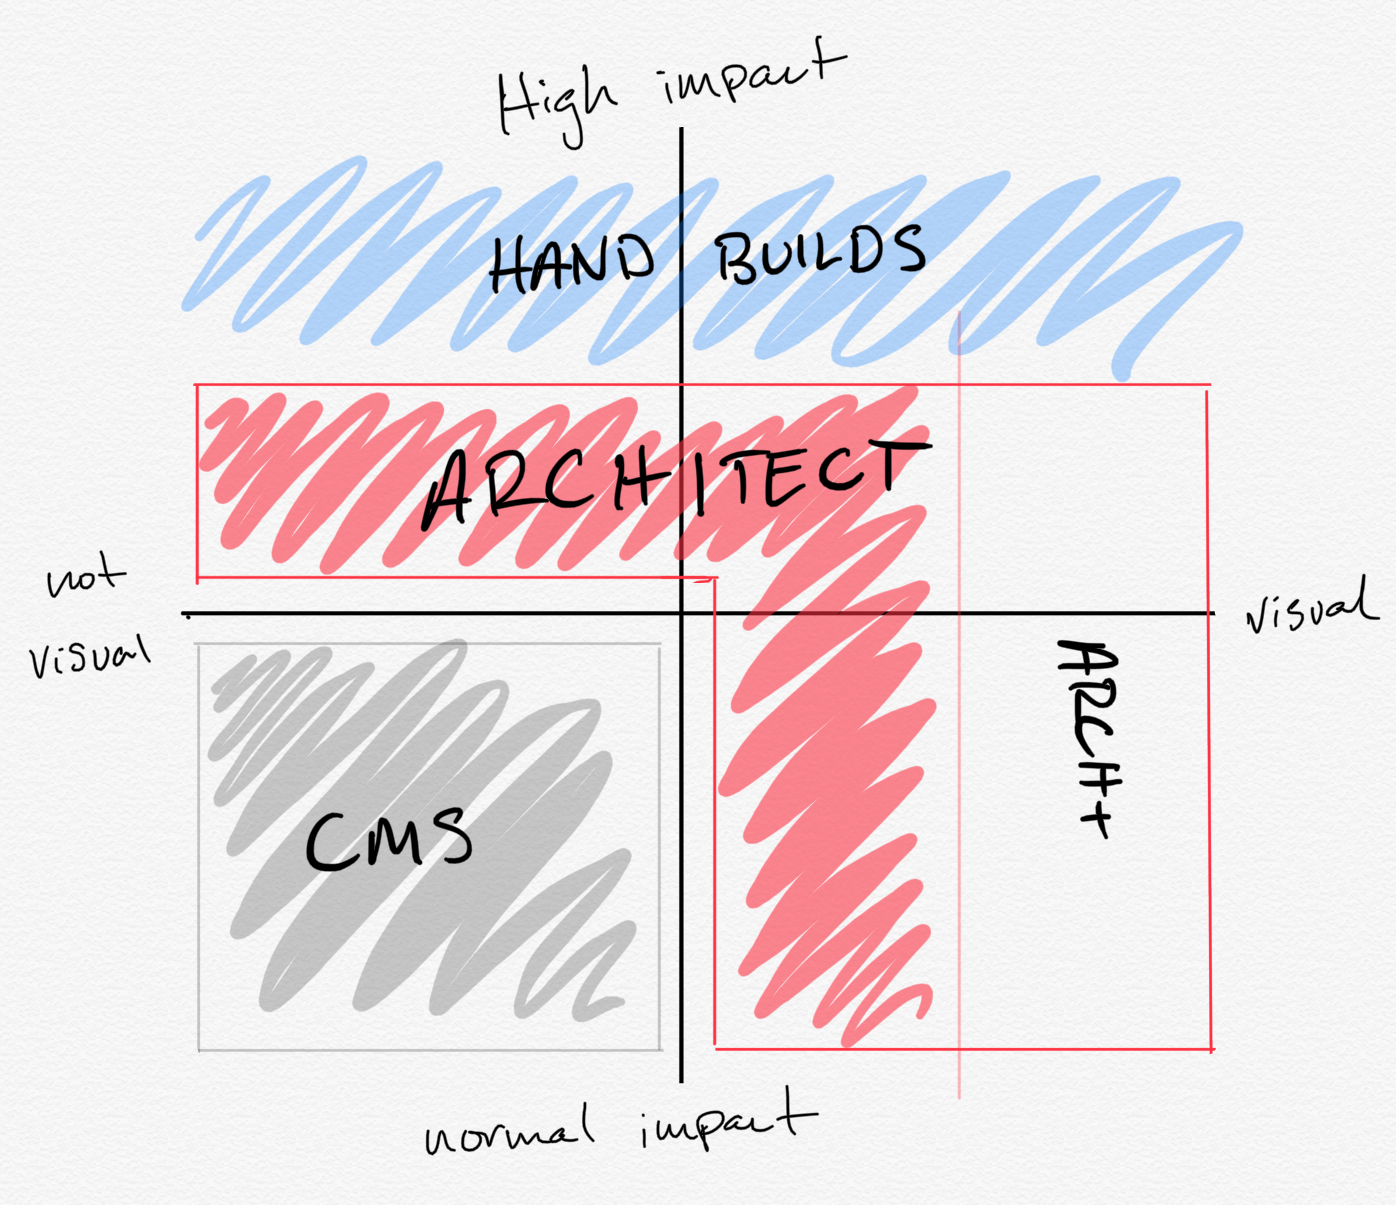 High impact
HAND BUILDS
ARCHITECT
not
visual
visual
ARCH+
CMS
normal impact